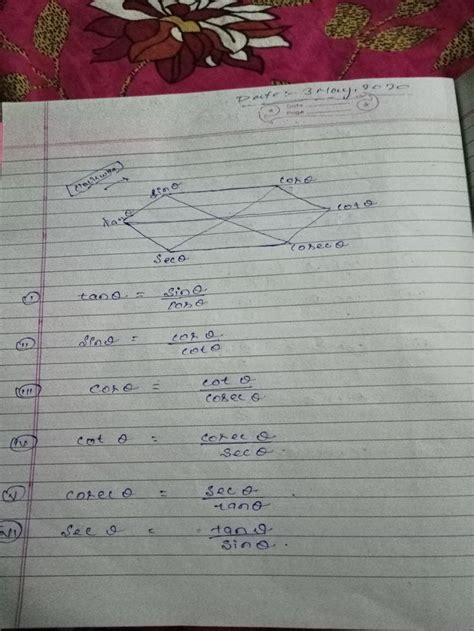 Date :- 3 May, 2020
Date
Page
Clockwise
sinθ cosθ
tanθ cotθ
secθ cosecθ
(i) tanθ = sinθ/cosθ
(ii) sinθ = cosθ/cotθ
(iii) cosθ = cotθ/cosecθ
(iv) cotθ = cosecθ/secθ
(v) cosecθ = secθ/tanθ
(vi) secθ = tanθ/sinθ